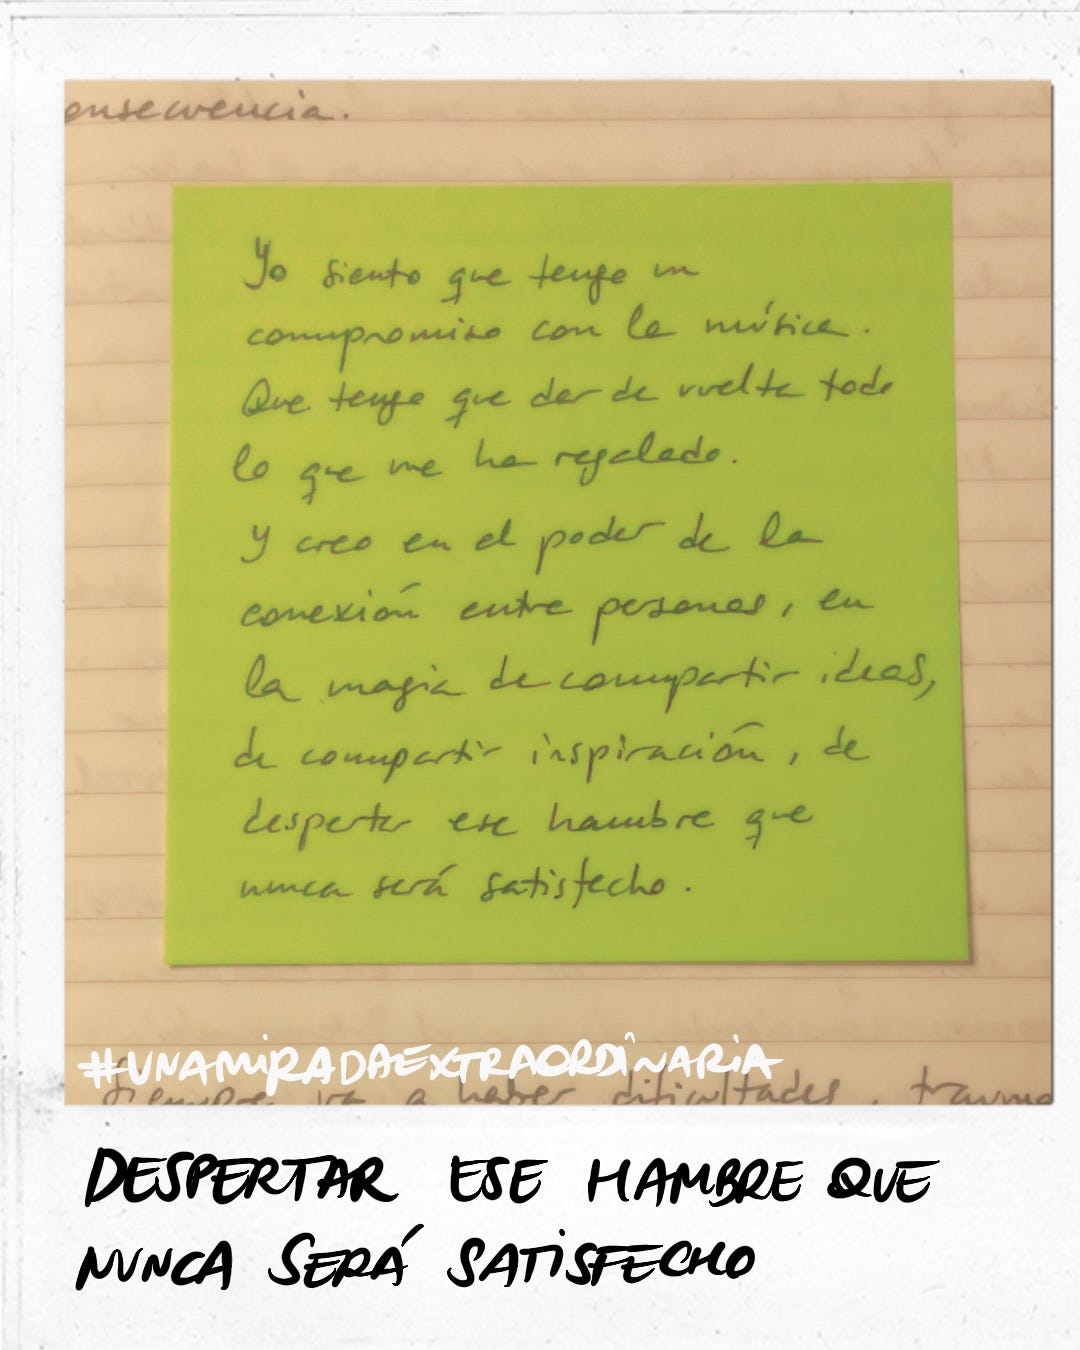 onsecuencia.
Yo siento que tengo un
compromiso con la música.
Que tengo que dar de vuelta todo
lo que me ha regalado.
Y creo en el poder de la
conexión entre personas, en
la magia de compartir ideas,
de compartir inspiración, de
despertar ese hambre que
nunca será satisfecho.
#UNAMIRADAEXTRAORDINARIA
Siempre va a haber dificultades, trauma
DESPERTAR ESE HAMBRE QUE
NUNCA SERÁ SATISFECHO